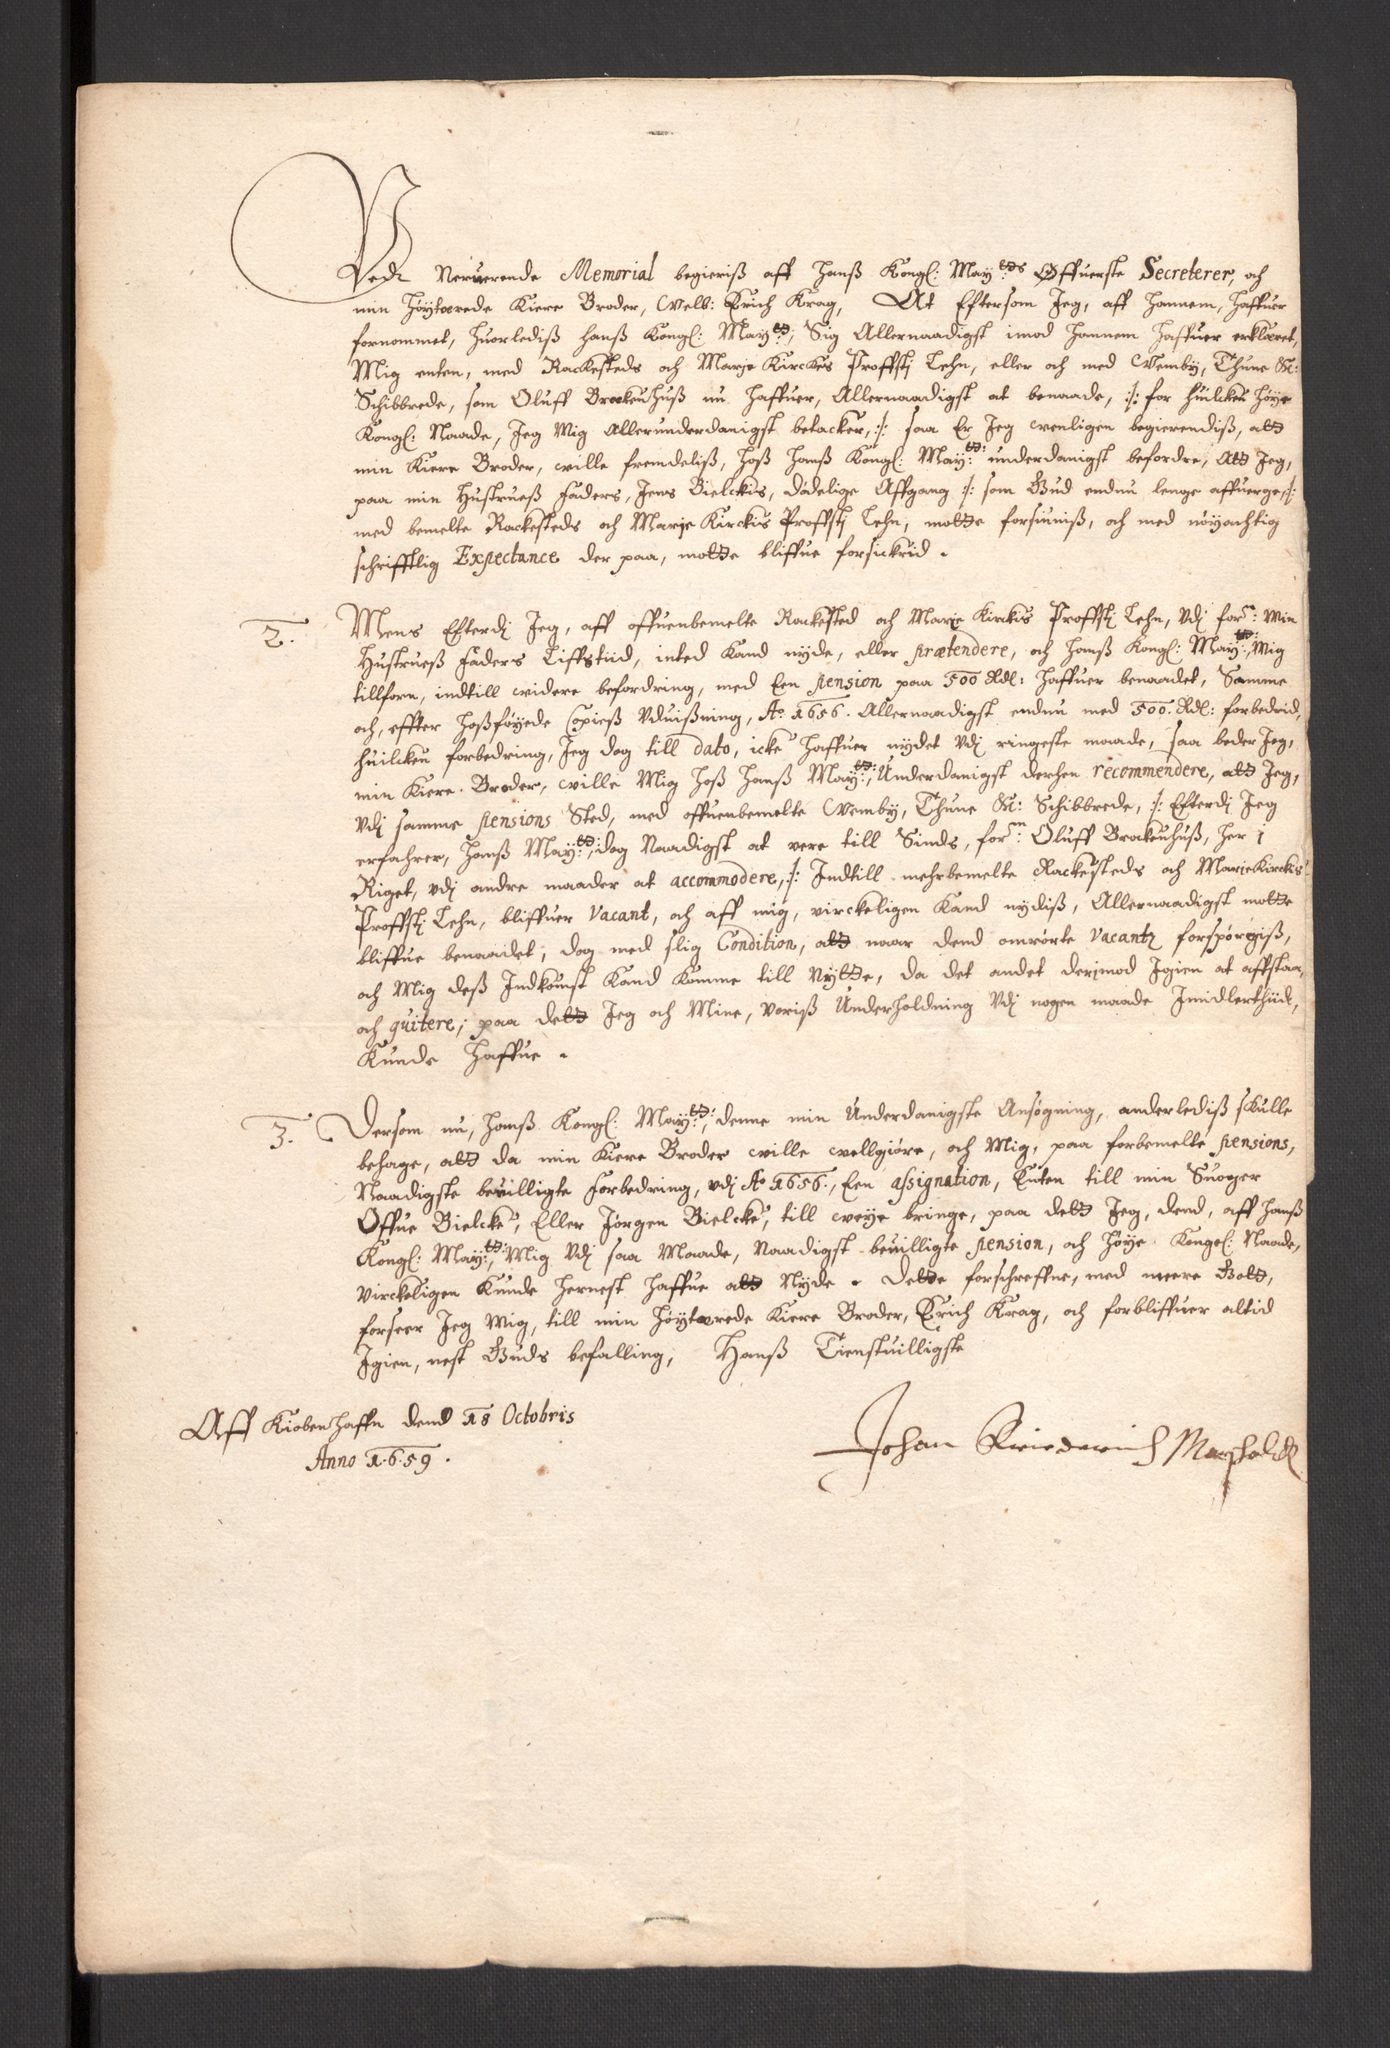 Ved Nerverende Memorial begieris aff Hanß Kongl: May:tts Øffuerste Secreterer, och
min Høytærede Kiere Broder, Velb: Erich Krag, At Eftersom Jeg, aff hannem, haffuer
fornommet, huorlediß hanß Kongl: May:tt, Sig Allernaadigst imod hannem haffuer erklæret,
Mig enten, med Rackesteds och Marje Kirckes Proffstj Lehn, eller och med Vemby, Thune &c:
Schibbrede, som Oluff Brockenhuß nu haffuer, Allernaadigst at benaade, :/: for huilcken høye
Kongl: Naade, Jeg Mig Allerunderdanigst betacker, :/: saa Er Jeg venligen begierendiß, att
min Kiere Broder, ville fremdeliß, hoß hanß Kongl: May:tt: underdanigst befordre, Att Jeg,
paa min Hustrueß Faders, Jens Bielckis, dødelige Affgang :/: som Gud endnu lenge affuerge :/:
med bemelte Rackesteds och Marje Kirckis Proffstj Lehn, motte forsiuniß, och med nøyachtig
schrifftlig Expectance der paa, motte bliffue forsickrid.
2. Mens Efterdj Jeg, aff offuenbemelte Rackested och Marje Kirckis Proffstj Lehn, Vdj for:ne Min
Hustrueß Faders Liffstiid, inted Kand nyde, eller prætendere, och hanß Kongl: May:tt:, Mig
tillforn, indtill videre befordring, med Een pension paa 500 Rdl: haffuer benaadet, Samme
och, effter hoßføyede Copieß Vduißning, A:o 1656. Allernaadigst endnu med 500. Rdl: forbedrid,
huilcken forbedring, Jeg dog till dato, icke haffuer nydet Vdj ringeste maade, saa beder Jeg,
min Kiere Broder, ville Mig hoß hanß May:tt:, Underdanigst derhen recommendere, att Jeg,
Vdj samme pensions Sted, med offuenbemelte Vemby, Thune &c: Schibbrede, :/: Efterdj Jeg
erfahrer, hanß May:tt:, dog Naadigst at vere till Sinds, for:ne Oluff Brockenhuß, her i
Riget, vdj andre maader at accommodere, :/: Indtill mehrbemelte Rackesteds och Marje Kirckis
Proffstj Lehn, bliffuer Vacant, och aff mig, virckeligen Kand nydiß, Allernaadigst motte
bliffue benaadet, dog med slig Condition, att naar dend omrørte Vacantz forspørgiß,
och Mig deß Indkomst Kand Komme till Nytte, da det andet derjmod Igien at affstaa,
och quitere, paa dett Jeg och Mine, voriß Underholdning Vdj nogen maade Imidlerthiid,
Kunde haffue.
3. Dersom nu, hanß Kongl: May:tt:, denne min Underdanigste Ansøgning, anderlediß skulle
behage, att da min Kiere Broder ville vellgiøre, och Mig, paa forbemelte pensions,
Naadigste bevilligte forbedring, vdj A:o 1656., Een assignation, Enten till min Suoger
Offue Bielcke, Eller Jørgen Bielcke, till veye bringe, paa dett Jeg, dend, aff hanß
Kongl: May:tt:, Mig Vdj saa Maade, Naadigst bevilligte pension, och høye Kongel: Naade,
virckeligen Kunde hernest haffue att Nyde. Dette forschreffne, med meere Gott,
forseer Jeg Mig, till min høytærede Kiere Broder, Erich Krag, och forbliffuer altid
Igien, nest Guds befalling, Hanß Tienstuilligste
Aff Kiøbenhaffn dend 18 Octobris
Anno 1.6.59.
Johan Friederich Marschalck